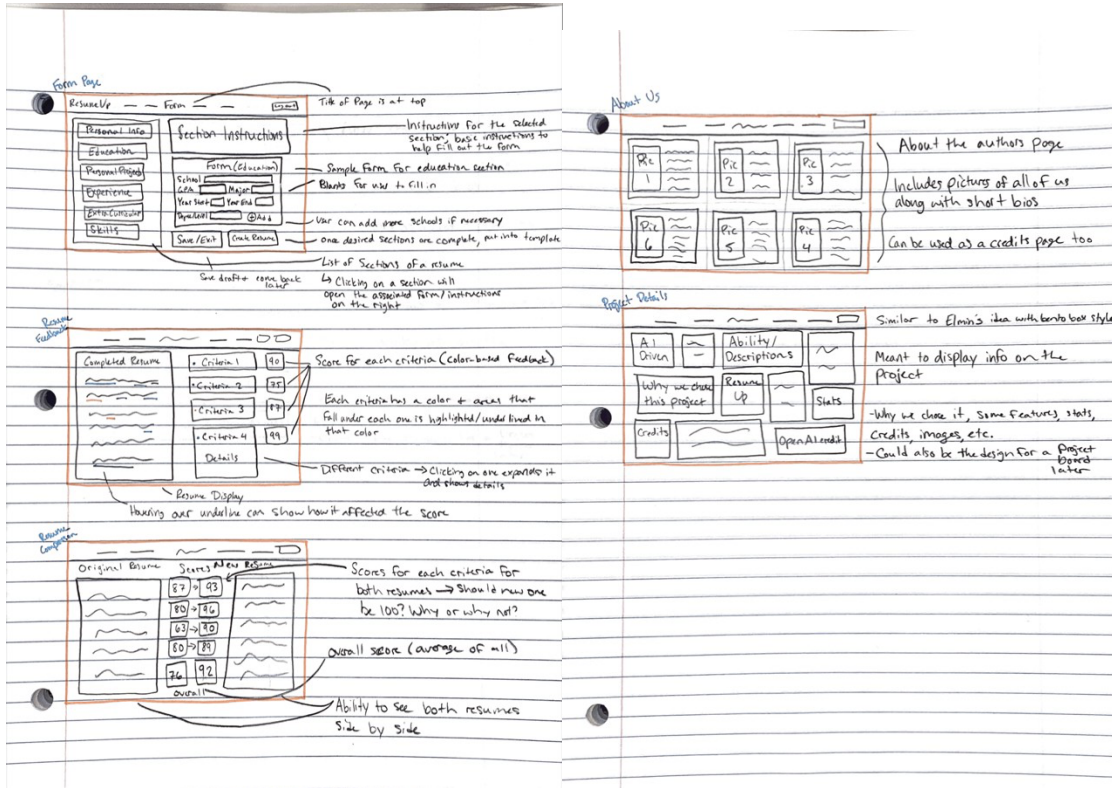 Form Page
ResumeUp — — Form — — Log out
Title of Page is at top
Personal Info
Education
Personal Project
Experience
Extracurricular
Skills
Section Instructions
Instructions for the selected
section; base instructions to
help fill out the form
Form (Education)
School
GPA Major
Year Start Year End
⊕Add
Sample Form for education section
Blanks for user to fill in
User can add more schools if necessary
Save/Exit Create Resume
once desired sections are complete, put into template
Save draft + come back
later
List of Sections of a resume
↳ Clicking on a section will
open the associated form/instructions
on the right
Resume
Feedback
Completed Resume
• Criteria 1 90
• Criteria 2 75
• Criteria 3 87
• Criteria 4 99
Details
Score for each criteria (color-based feedback)
Each criteria has a color + areas that
fall under each one is highlighted/underlined in
that color
Different criteria → Clicking on one expands it
and shows details
Resume Display
Hovering over underline can show how it affected the score
Resume
Comparison
Original Resume Scores New Resume
87 → 93
80 → 96
63 → 90
80 → 89
76 92
overall
Scores for each criteria for
both resumes → Should new one
be 100? Why or why not?
overall score (average of all)
Ability to see both resumes
side by side
About Us
Pic 1
Pic 2
Pic 3
Pic 6
Pic 5
Pic 4
About the authors page
Includes pictures of all of us
along with short bios
Can be used as a credits page too
Project Details
AI
Driven
Ability/
Descriptions
Why we chose
this project
Resume
Up
Stats
Credits
Open AI credit
Similar to Elmin's idea with bento box style
Meant to display info on the
Project
-Why we chose it, some features, stats,
credits, images, etc.
-Could also be the design for a Project
board
later